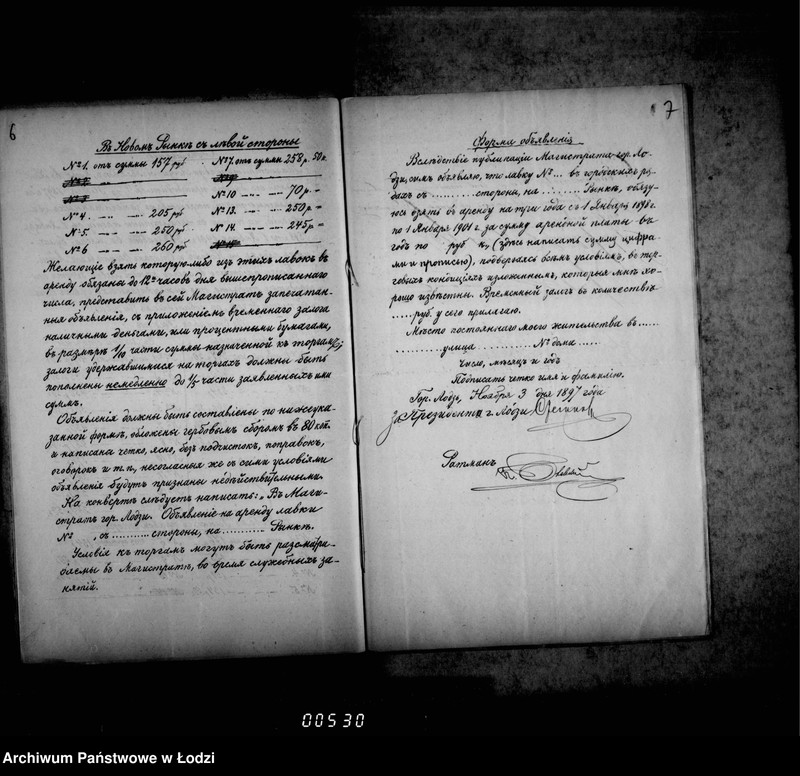 6
Въ Новомъ Рынкѣ съ лѣвой стороны
№ 1. отъ суммы 157 руб. № 7. отъ суммы 258 р. 50 к.
№ 10 " " 70 р. "
№ 4. " " 205 руб № 13. " " 250 р "
№ 5 " " 250 руб № 14. " " 245 р "
№ 6 " " 260 руб
Желающіе взять которую либо изъ этихъ лавокъ въ
аренду обязаны до 12ти часовъ дня вышепрописаннаго
числа, представить въ сей Магистратъ запечатан-
ныя объявленія, съ приложеніемъ временнаго залога
наличными деньгами, или процентными бумагами,
въ размѣрѣ 1/10 части суммы назначенной къ торгамъ;
залоги удержавшимися на торгахъ должны быть
пополнены немедленно до 1/5 части заявленныхъ ими
суммъ.
Объявленія должны быть составлены по нижеука-
занной формѣ, обложены гербовымъ сборомъ въ 80 коп.
и написаны четко, ясно, безъ подчистокъ, поправокъ,
оговорокъ и т.п., несогласныя же съ сими условіями
объявленія будутъ признаны недѣйствительными.
На конвертѣ слѣдуетъ написать: „Въ Маги-
стратъ гор. Лодзи. Объявленіе на аренду лавки
№ , съ .......... стороны, на .......... Рынкѣ.
Условія къ торгамъ могутъ быть разсматри-
ваемы въ Магистратѣ, во время служебныхъ за-
нятій.
7
Форма объявленія
Вслѣдствіе публикаціи Магистрата гор. Ло-
дзи, симъ объявляю, что лавку № ... въ городскихъ ря-
дахъ съ ........ стороны, на ........ Рынкѣ, обязу-
юсь взять въ аренду на три года съ 1 Января 1898 г.
по 1 Января 1901 г. за сумму арендной платы въ
годъ по руб к, (здѣсь написать сумму цифра-
ми и прописью), подвергаясь всѣмъ условіямъ, въ тор-
говыхъ кондиціяхъ изложеннымъ, которыя мнѣ хо-
рошо извѣстны. Временный залогъ въ количествѣ
..... руб. у сего прилагаю.
Мѣсто постояннаго моего жительства въ ......
.......... улица .......... № дома .....
Число, мѣсяцъ и годъ
Подписать четко имя и фамилію.
Гор. Лодзь, Ноября 3 дня 1897 года
Президентъ г. Лодзи
Ратманъ
00530
Archiwum Państwowe w Łodzi